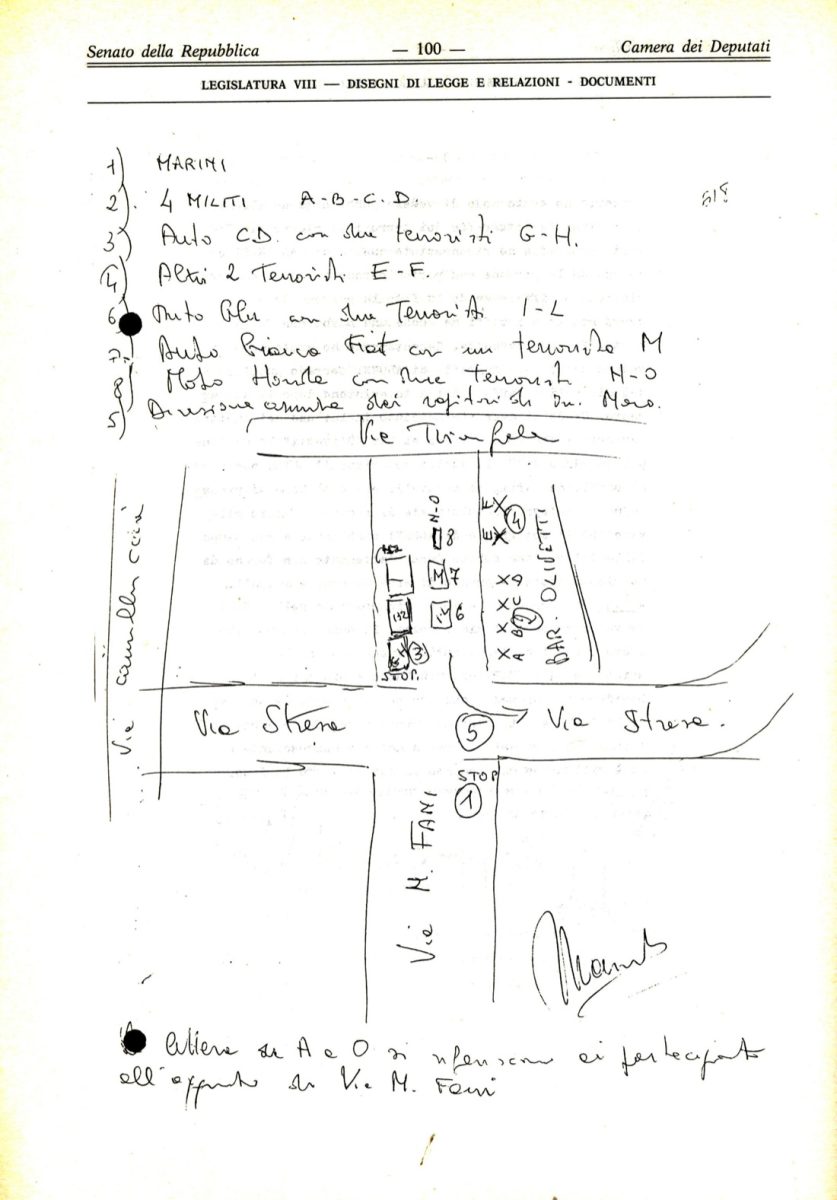 Senato della Repubblica — 100 — Camera dei Deputati
LEGISLATURA VIII — DISEGNI DI LEGGE E RELAZIONI - DOCUMENTI
1) MARINI
2) 4 MILITI A-B-C-D.
3) Auto CD. con due terroristi G-H.
4) Altri 2 Terroristi E-F.
6 Auto Blu con due Terroristi I-L
7) Auto Bianca Fiat con un terrorista M
8) Moto Honda con due terroristi N-O
5) Direzione dei rapitori di On. Moro.
Via Trionfale
N-O
8
F X
E X
4
T
M 7
6
X D
X C
X B
X A
2
BAR. OLIVETTI
3
STOP.
Via Camilluccia
Via Stresa
5
Via Stresa.
STOP
1
Via M. FANI
lettere da A a O si riferiscono ai partecipanti
all'agguato di Via M. Fani